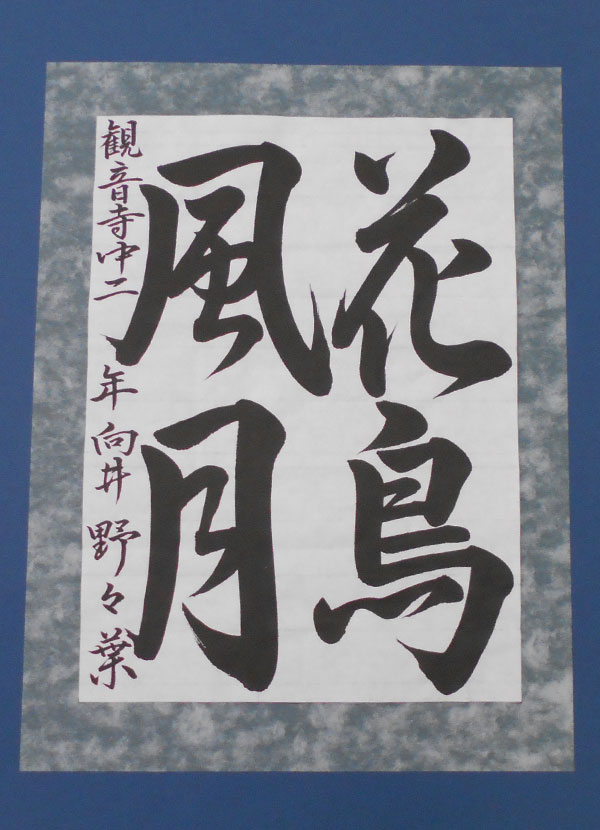 花鳥
風月
観音寺中二年向井野々葉